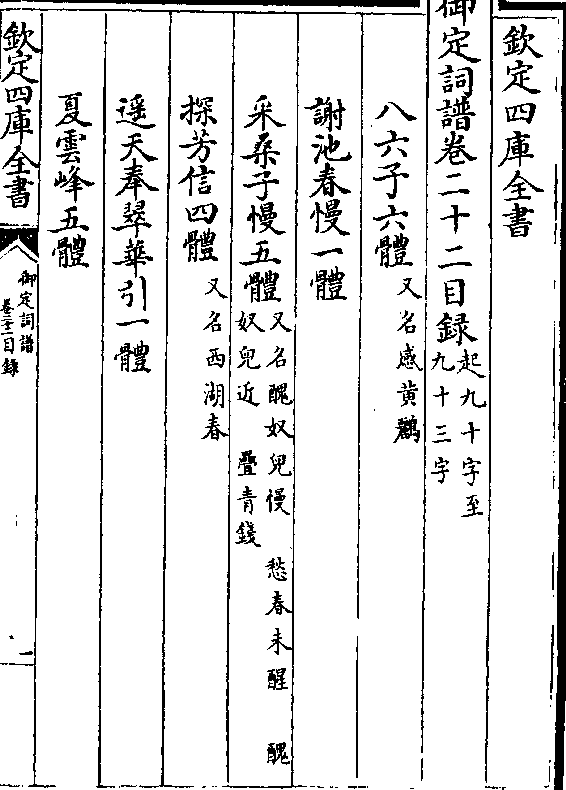 欽定四庫全書
御定詞譜卷二十二目録 起九十字至九十三字
八六子六體 又名感黄鸝
謝池春慢一體
采桑子慢五體 又名醜奴兒慢 愁春未醒 醜奴兒近 疊青錢
探芳信四體 又名西湖春
遥天奉翠華引一體
夏雲峰五體
欽定四庫全書
御定詞譜
卷二十二目録
一